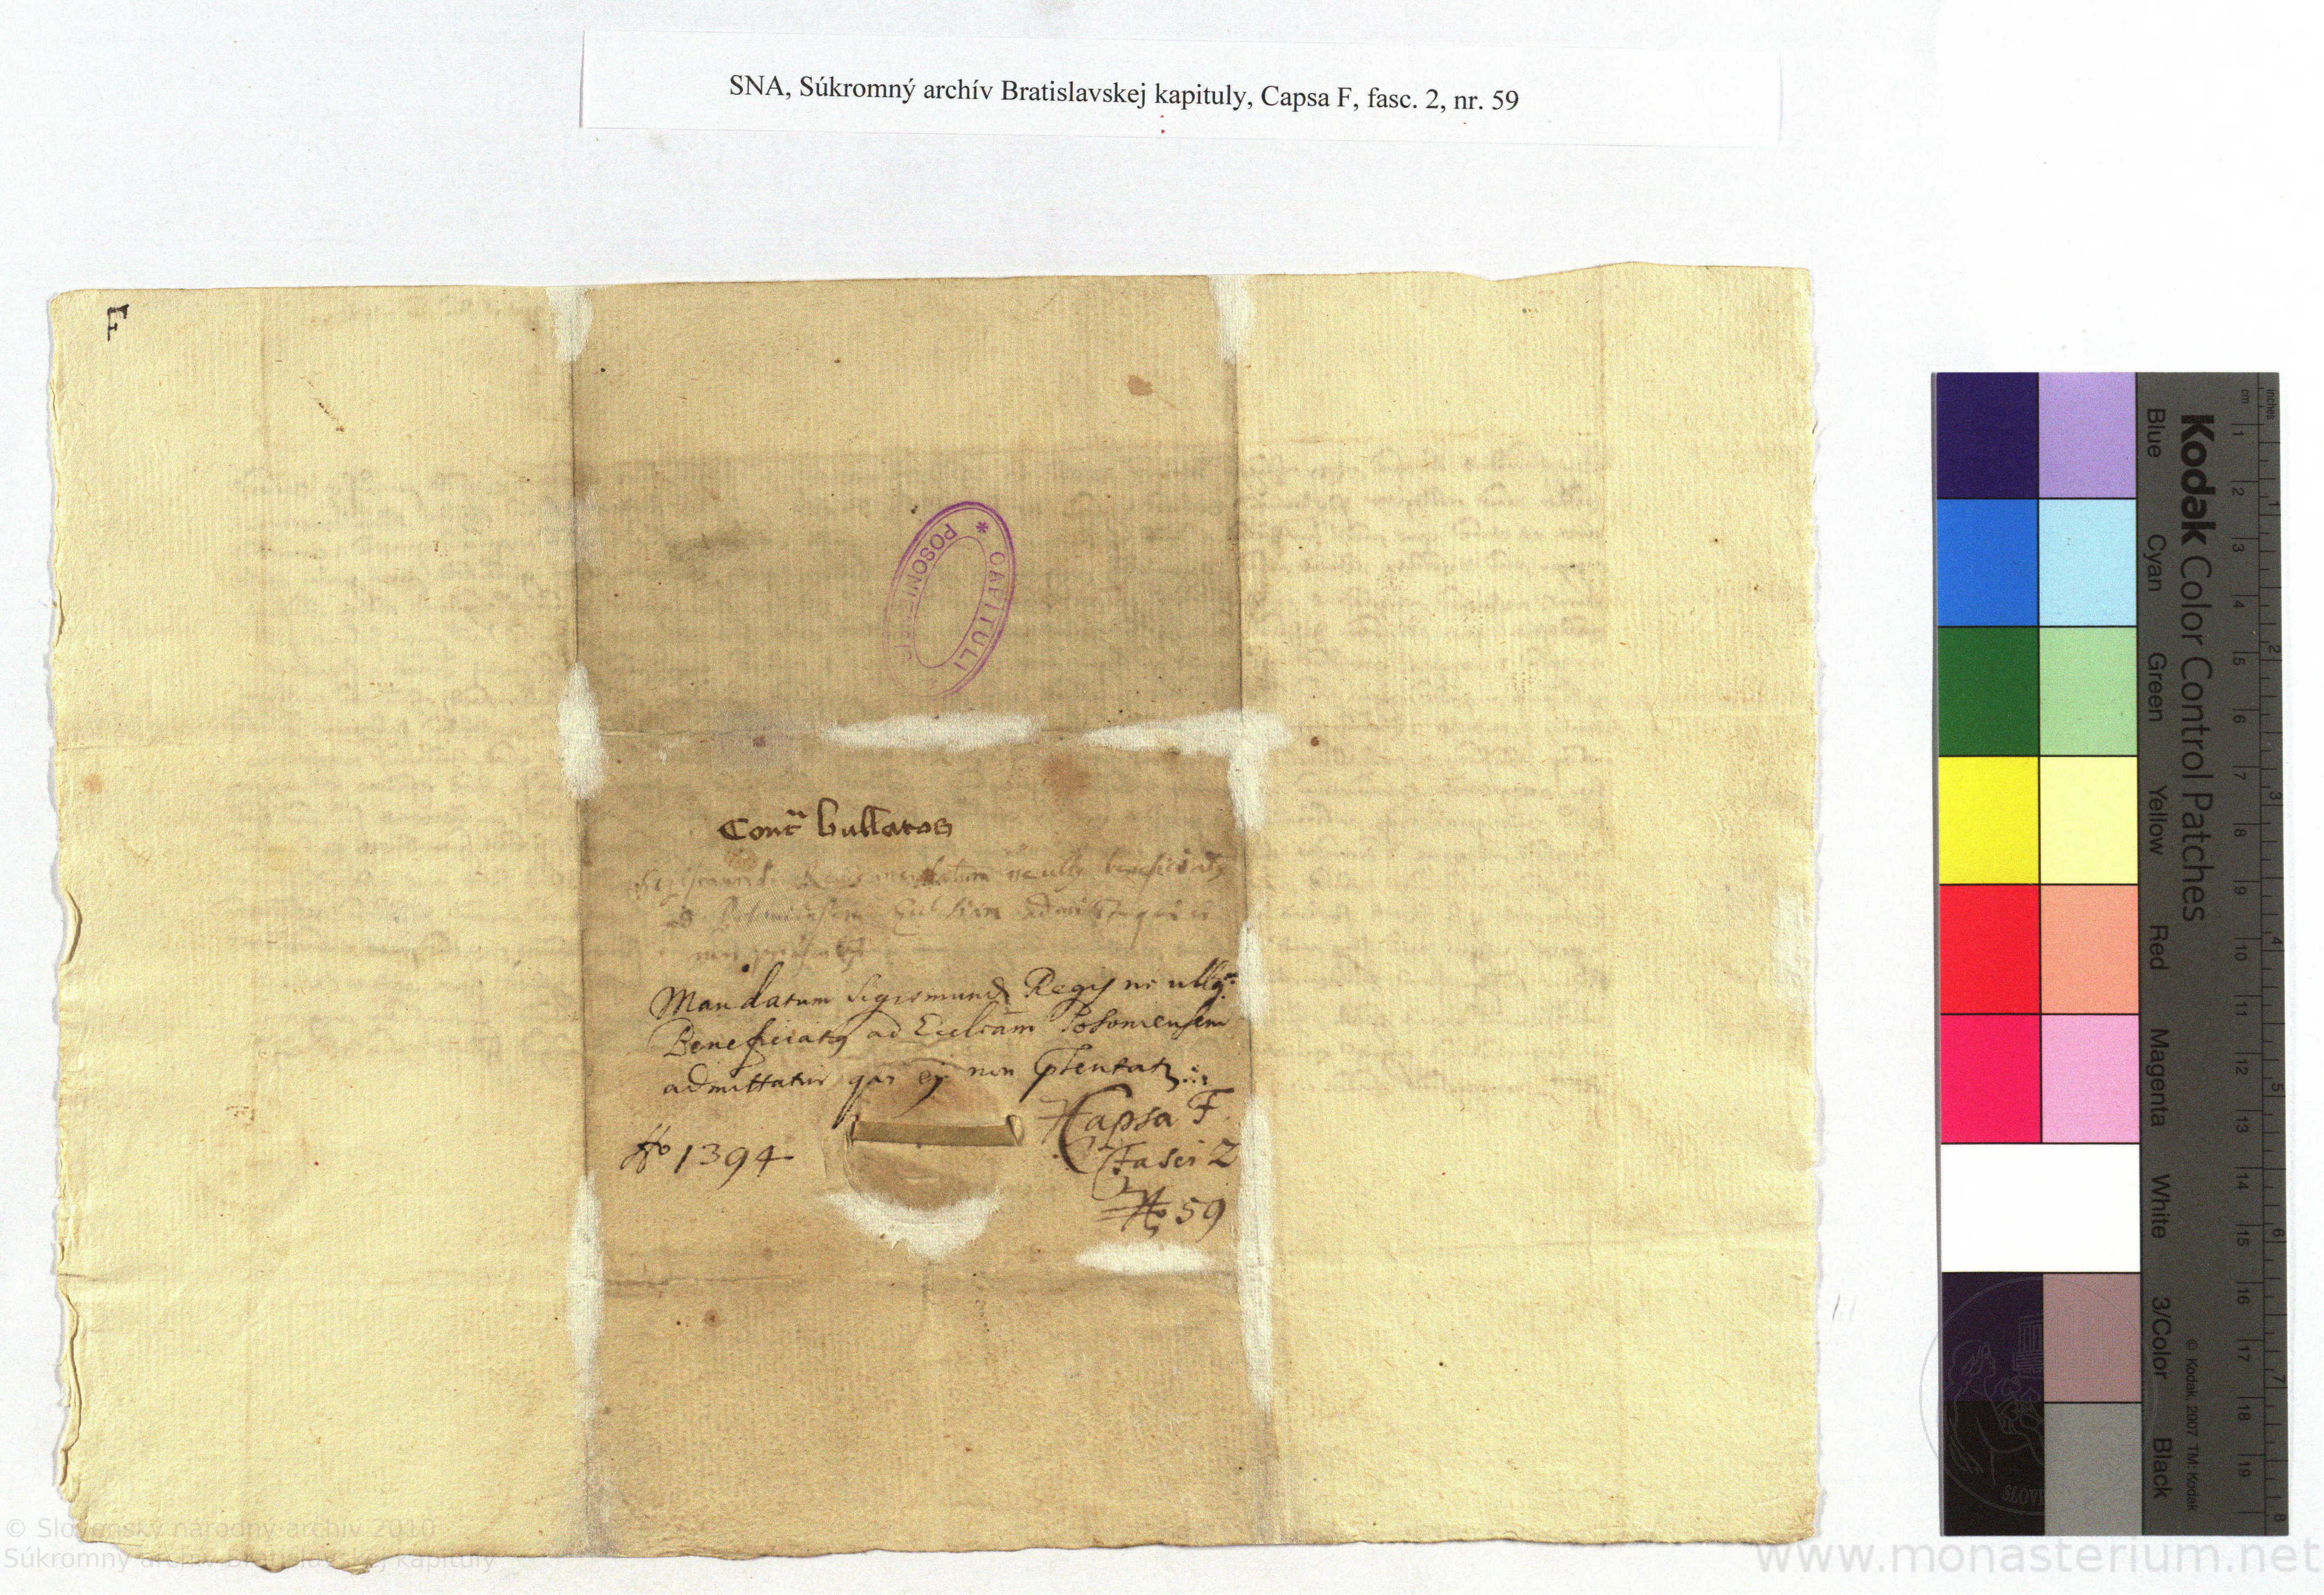 SNA, Súkromný archív Bratislavskej kapituly, Capsa F, fasc. 2, nr. 59
F
* CAPITULI POSONIENSIS
Cont^a bullatos
Sigismundi Regis mandatum ne ullus beneficiatus
ad Posoniensem Ecclesiam admittatur qui
non
Mandatum Sigismundi Regis ne ullus
Beneficiatus ad Eccl͞iam Posoniensem
admittatur qui ei non p͞sentatur
No 1394
Capsa F.
Fasci 2
No 59
Kodak Color Control Patches
Blue Cyan Green Yellow Red Magenta White 3/Color Black
© Kodak, 2007 TM: Kodak
inches 1 2 3 4 5 6 7 8
cm 1 2 3 4 5 6 7 8 9 10 11 12 13 14 15 16 17 18 19
© Slovenský národný archív 2010
Súkromný archív Bratislavskej kapituly
www.monasterium.net